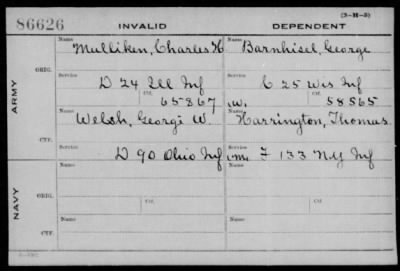 (3-H-3)
86626 INVALID DEPENDENT
ARMY
ORIG.
Name Name
Mulliken, Charles H Barnhisel, George
Service Service
D 24 Ill Inf C 25 Wis Inf
Ctf. Ctf.
65867 W. 58565
CTF.
Name Name
Welsh, George W. Harrington, Thomas
Service Service
D 90 Ohio Inf F 133 N.Y Inf
NAVY
ORIG.
Name Ctf. Name Ctf.
CTF.
Name Name